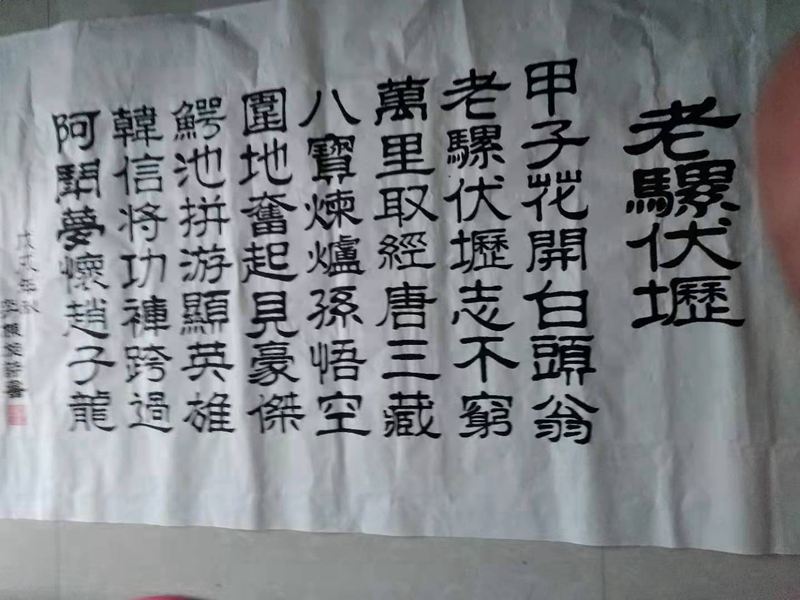 老騾伏壢
甲子花開白頭翁
老騾伏壢志不窮
萬里取經唐三藏
八寶煉爐孫悟空
圍地奮起見豪傑
鰐池拼游顯英雄
韓信将功褲跨過
阿鬥夢懷趙子龍
戊戌年秋